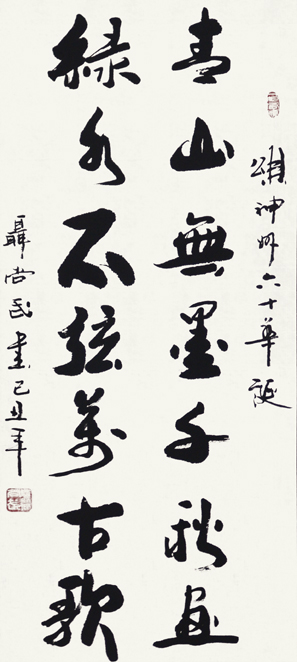 頌神州六十華誕
青山無墨千秋畫
綠水不弦萬古歌
聶尚 書己丑年